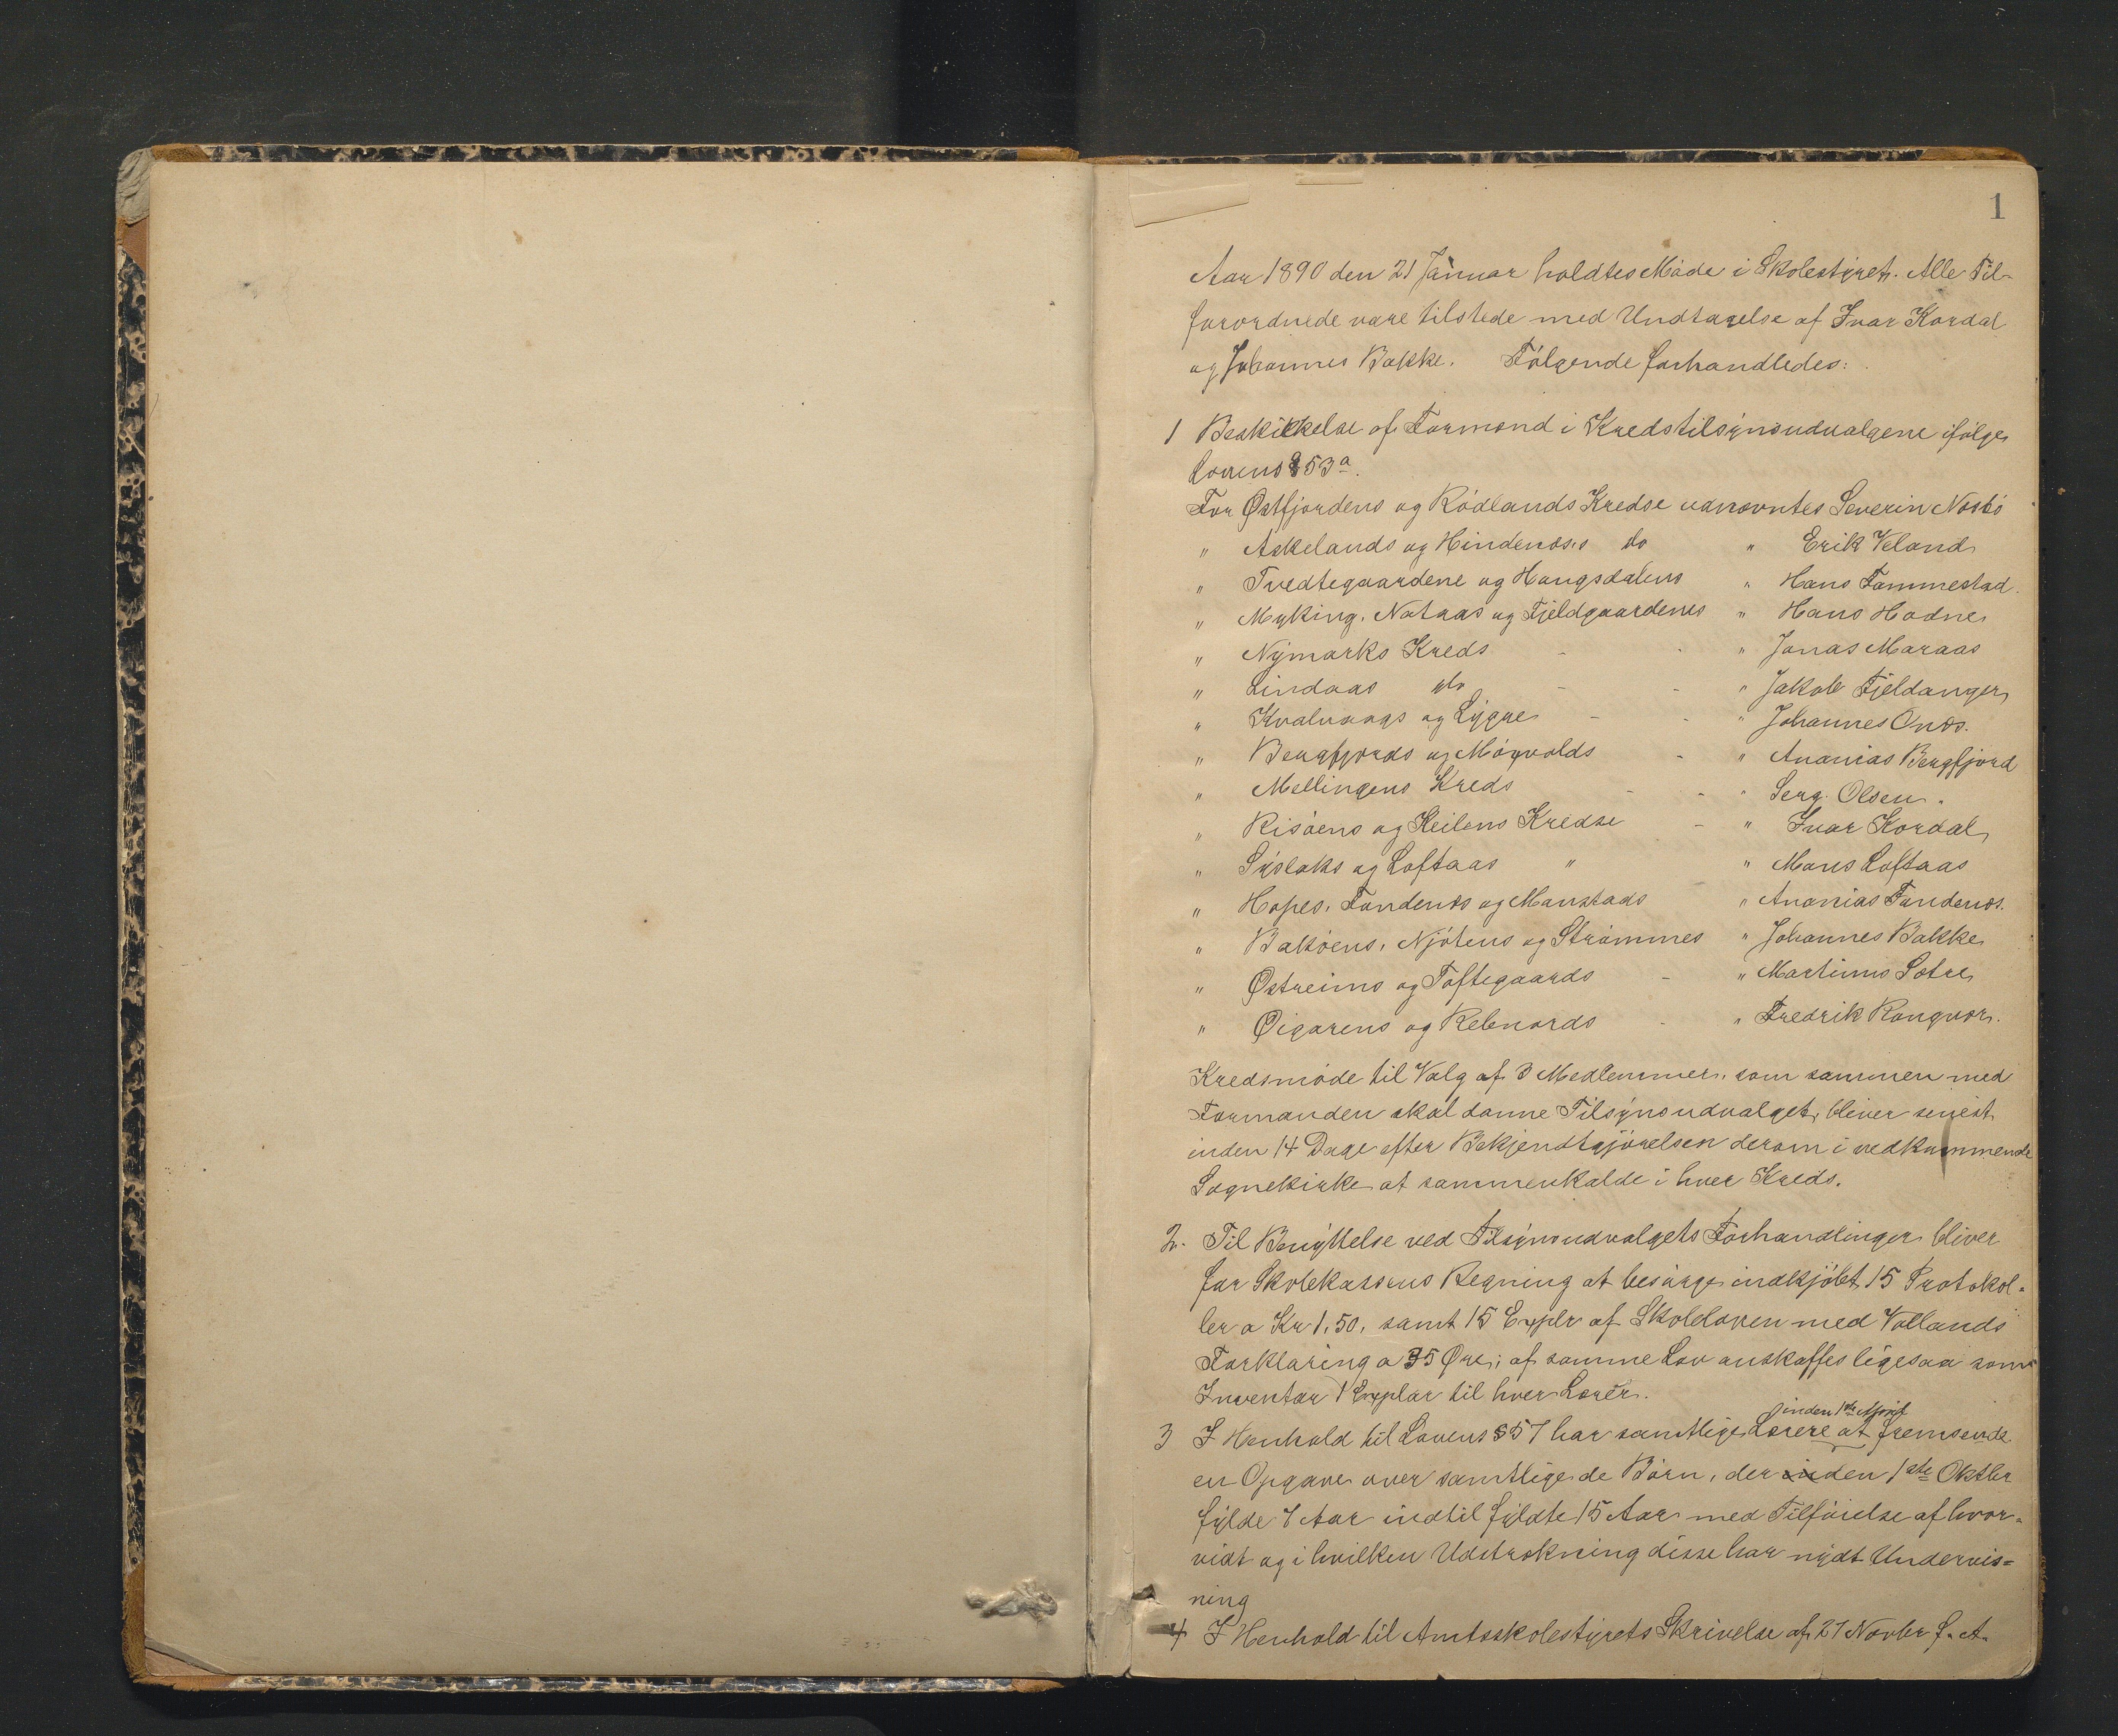 1
Aar 1890 den 21 Januar holdtes Møde i Skolestyret. Alle Til-
forordnede vare tilstede med Undtagelse af Ivar Kordal
og Johannes Bakke. Følgende forhandledes:
1 Beskikkelse af Formænd i Kredstilsynsudvalgene ifølge
Lovens § 53 a.
For Østfjordens og Rødlands Kredse udnævntes Severin Næsbø
" Askelands og Hindenæs's do " Erik Veland
" Tvedtegaardene og Haugsdalens " Hans Fammestad.
" Myking, Nataas og Fjeldgaardenes " Hans Hodne
" Nymarks Kreds - - " Jonas Maraas
" Lindaas do - - " Jakob Fjeldanger
" Kvalvaags og Lygre - - " Johannes Onæs.
" Bergfjords og Møgvolds - " Ananias Bergfjord
" Mellingens Kreds - - " Serg. Olsen.
" Risøens og Keilens Kredse - " Ivar Kordal
" Syslaks og Loftaas " " Mons Loftaas
" Hopes, Fandenæs og Manstads " Ananias Fandenæs.
" Bakøens, Njøtens og Strømmes " Johannes Bakke
" Østreims og Toftegaards - " Martinus Sætre
" Øigarens og Rebnords - " Fredrik Rongvær.
Kredsmøde til Valg af 3 Medlemmer, som sammen med
Formanden skal danne Tilsynsudvalget, bliver senest
inden 14 Dage efter Bekjendtgjørelsen derom i vedkommende
Sognekirke at sammenkalde i hver Kreds.
2. Til Benyttelse ved Tilsynsudvalgets Forhandlinger bliver
for Skolekassens Regning at besørge indkjøbt 15 Protokol-
ler a Kr 1,50, samt 15 Explr af Skoleloven med Vollands
Forklaring a 35 Øre; af samme Lov anskaffes ligesaa som
Inventar 1 Explar til hver Lærer.
inden 1ste April
3 I Henhold til Lovens § 57 har samtlige Lærere at fremsende
en Opgave over samtlige de Børn, der inden 1ste Oktbr
fylde 7 Aar indtil fyldte 15 Aar med Tilføielse af hvor-
vidt og i hvilken Udstrækning disse har nydt Undervis=
ning
4 I Henhold til Amtsskolestyrets Skrivelse af 27 Novbr f. A.